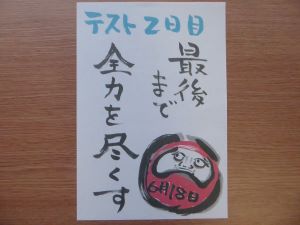 テスト2日目
最後
まで
全力を尽くす
6月18日